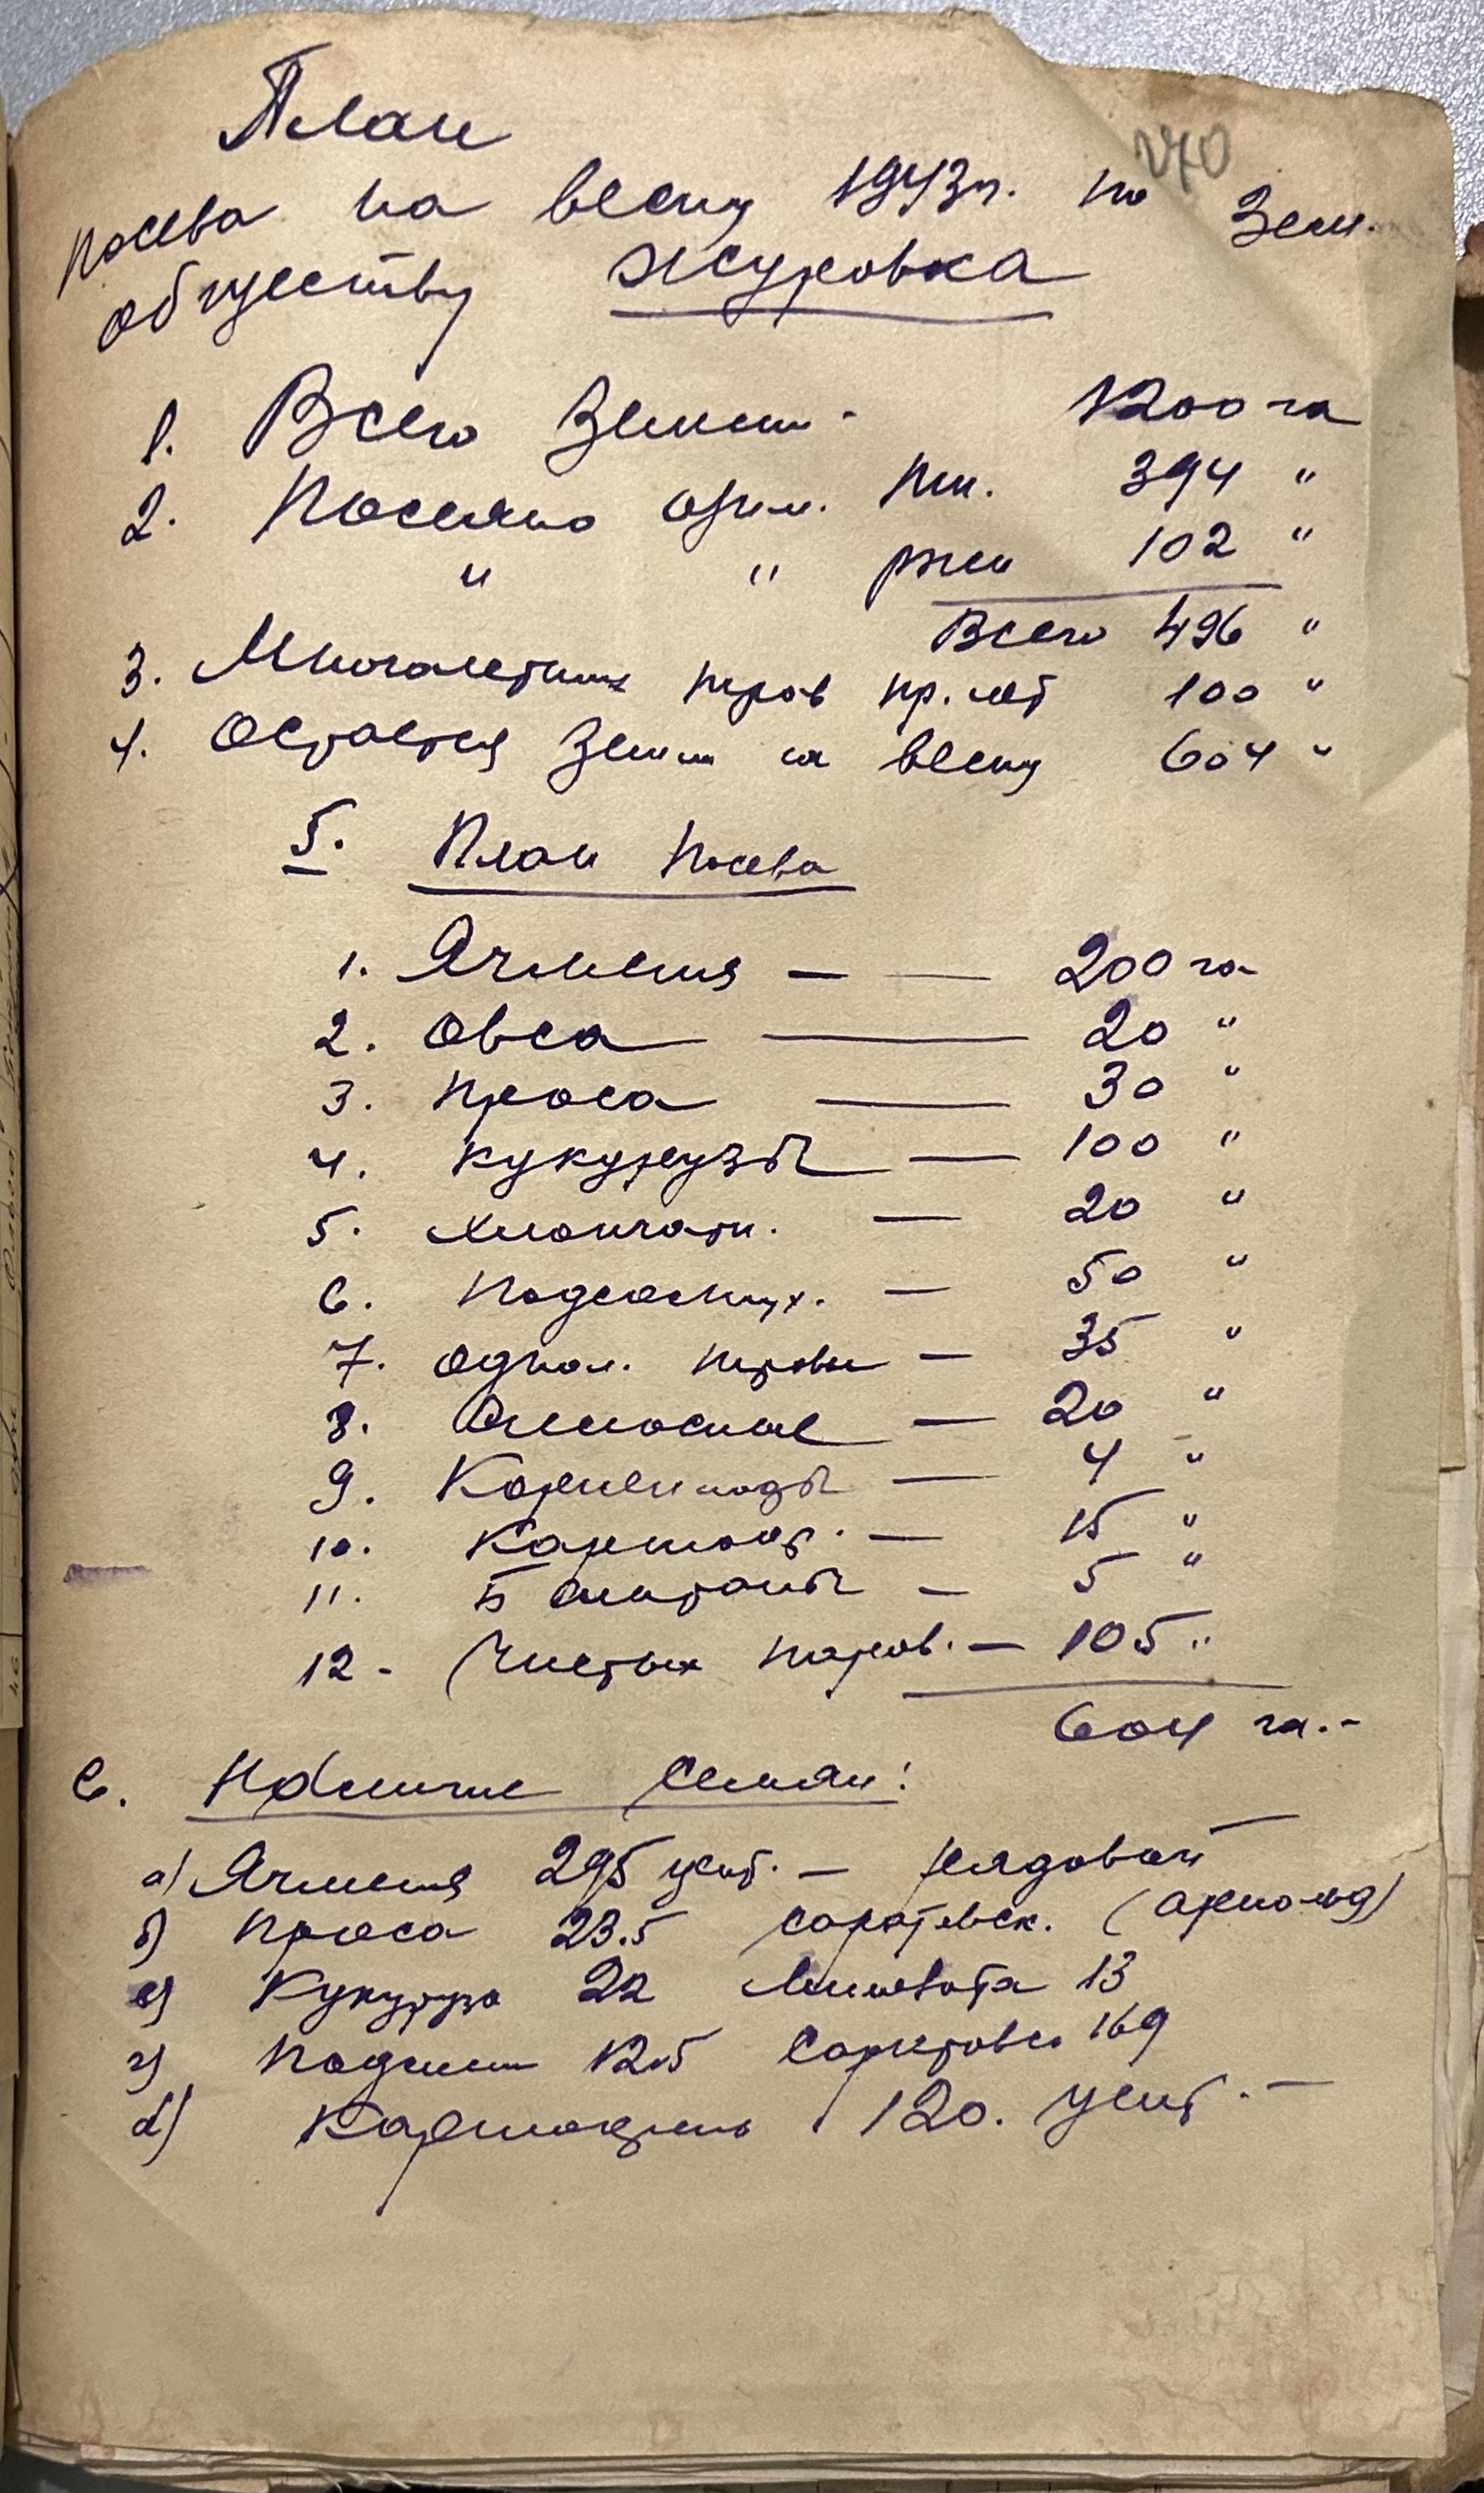 План
270
посева на весну 1943 г. по Зем.
обществу Журовка
1. Всего земли - 1200 га
2. Посеяно озим. пш. 394 "
" " ржи 102 "
Всего 496 "
3. Многолетних трав пр. лет 100 "
4. Остается земли на весну 604 "
5. План посева
1. Ячменя — — 200 га
2. Овса — 20 "
3. Проса — 30 "
4. кукурузы — 100 "
5. хлопчатн. — 20 "
6. Подсолнух. — 50 "
7. однол. травы — 35 "
8. — 20 "
9. Корнеплоды — 4 "
10. Картоф. — 15 "
11. Б — 5 "
12 - Чистых паров. — 105 "
604 га. -
6. Наличие семян:
а) Ячменя 295 цент. — рядовой
б) Проса 23.5 саратовск. (арнольд)
в) Кукуруза 22 Минезота 13
г) Подсолн 12.5 Саратовск 169
д) Картофель 120. цент. —